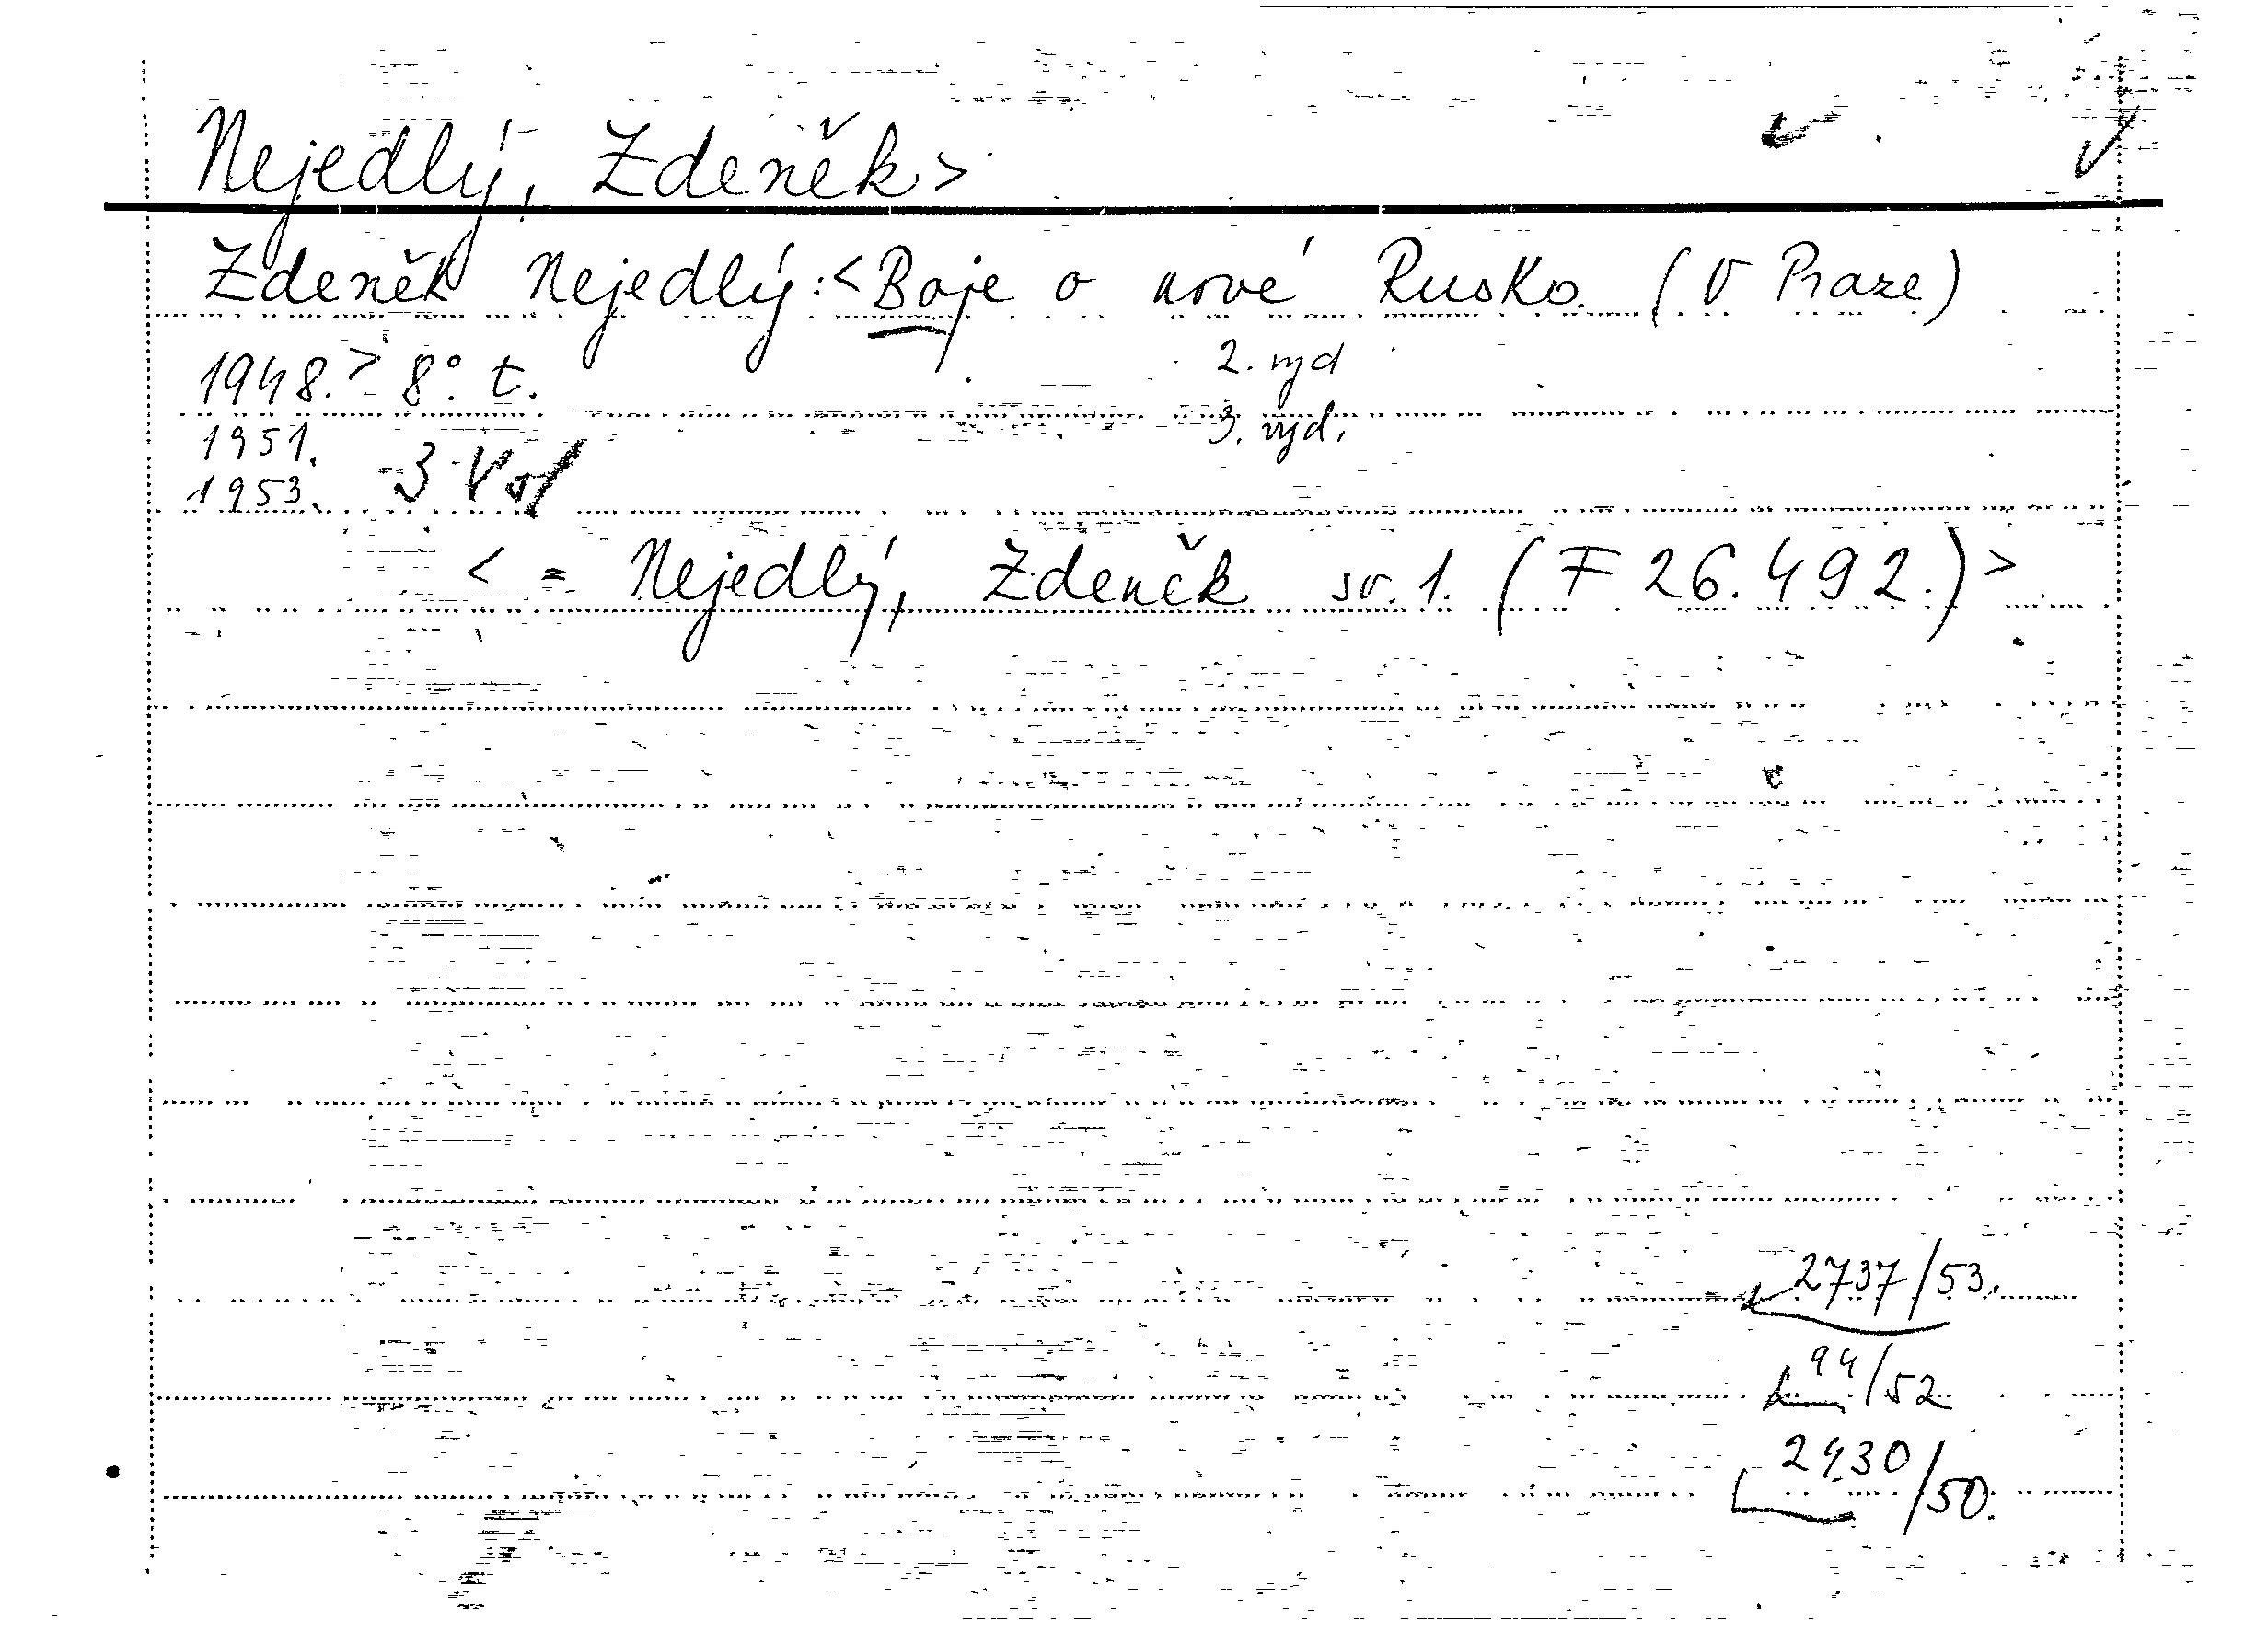 Nejedlý, Zdeněk>
Zdeněk Nejedlý:<Boje o nové Rusko. (V Praze)
1948.> 8° t. 2. vyd
1951. 3. vyd.
1953. 3 Vol
< = Nejedlý, Zdeněk sv. 1. (F 26.492.)>
2737/53.
94/52
2430/50.